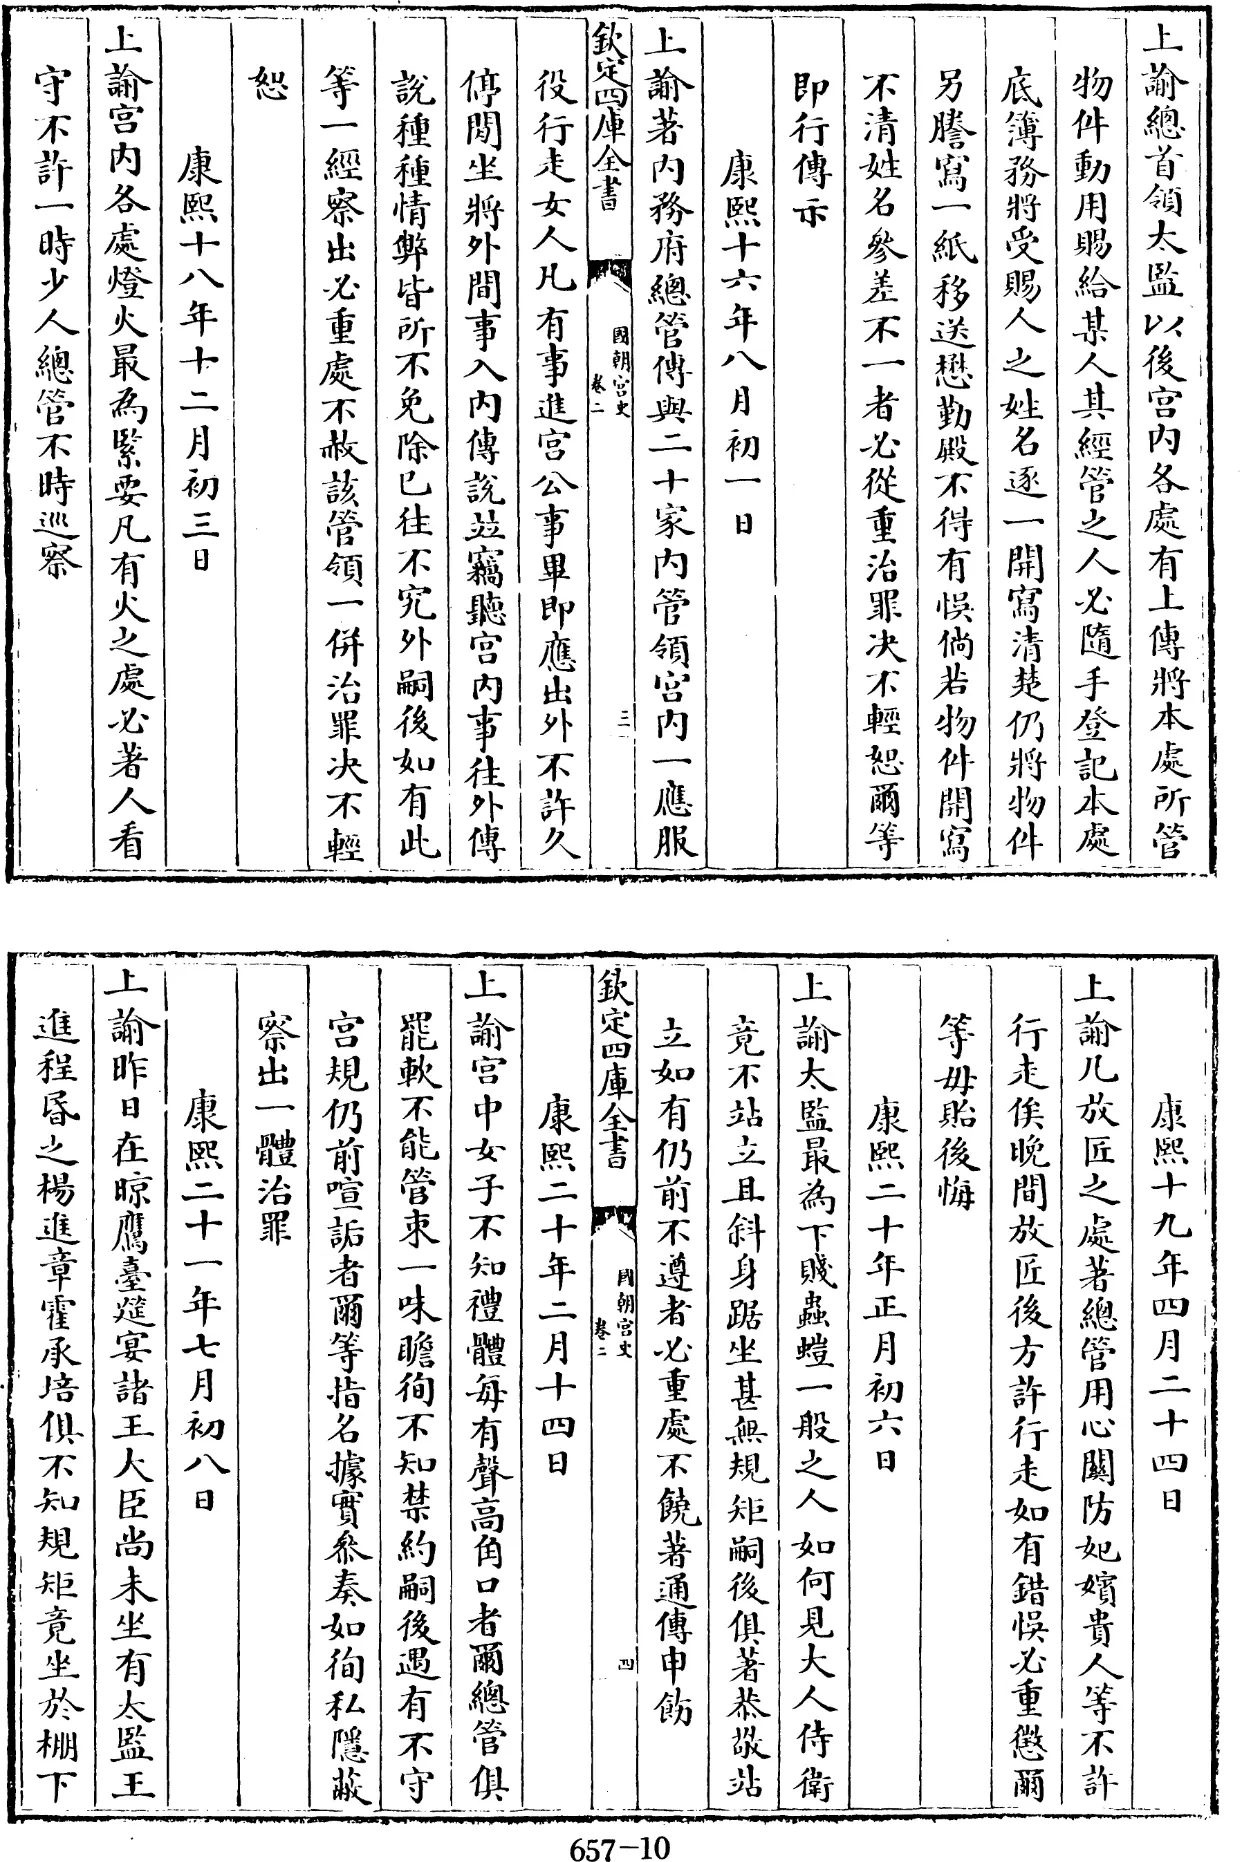 上諭總首領太監以後宫内各處有上傳將本處所管
物件動用賜給某人其經管之人必隨手登記本處
底簿務將受賜人之姓名逐一開寫清楚仍將物件
另謄寫一紙移送懋勤殿不得有悞倘若物件開寫
不清姓名參差不一者必從重治罪决不輕恕爾等
即行傳示
康熙十六年八月初一日
上諭著内務府總管傳與二十家内管領宫内一應服
欽定四庫全書
國朝宫史
卷二
三
役行走女人凡有事進宫公事畢即應出外不許久
停閒坐將外間事入内傳說並竊聽宫内事往外傳
說種種情弊皆所不免除已往不究外嗣後如有此
等一經察出必重處不赦該管領一併治罪决不輕
恕
康熙十八年十二月初三日
上諭宫内各處燈火最為緊要凡有火之處必著人看
守不許一時少人總管不時巡察
康熙十九年四月二十四日
上諭凡放匠之處著總管用心關防妃嬪貴人等不許
行走俟晚間放匠後方許行走如有錯悞必重懲爾
等毋貽後悔
康熙二十年正月初六日
上諭太監最為下賤蟲螘一般之人如何見大人侍衛
竟不站立且斜身踞坐甚無規矩嗣後俱著恭敬站
立如有仍前不遵者必重處不饒著通傳申飭
欽定四庫全書
國朝宫史
卷二
四
康熙二十年二月十四日
上諭宫中女子不知禮體每有聲高角口者爾總管俱
罷軟不能管束一味瞻徇不知禁約嗣後遇有不守
宫規仍前喧詬者爾等指名據實參奏如徇私隱蔽
察出一體治罪
康熙二十一年七月初八日
上諭昨日在晾鷹臺筵宴諸王大臣尚未坐有太監王
進程昬之楊進章霍承培俱不知規矩竟坐於棚下
657-10